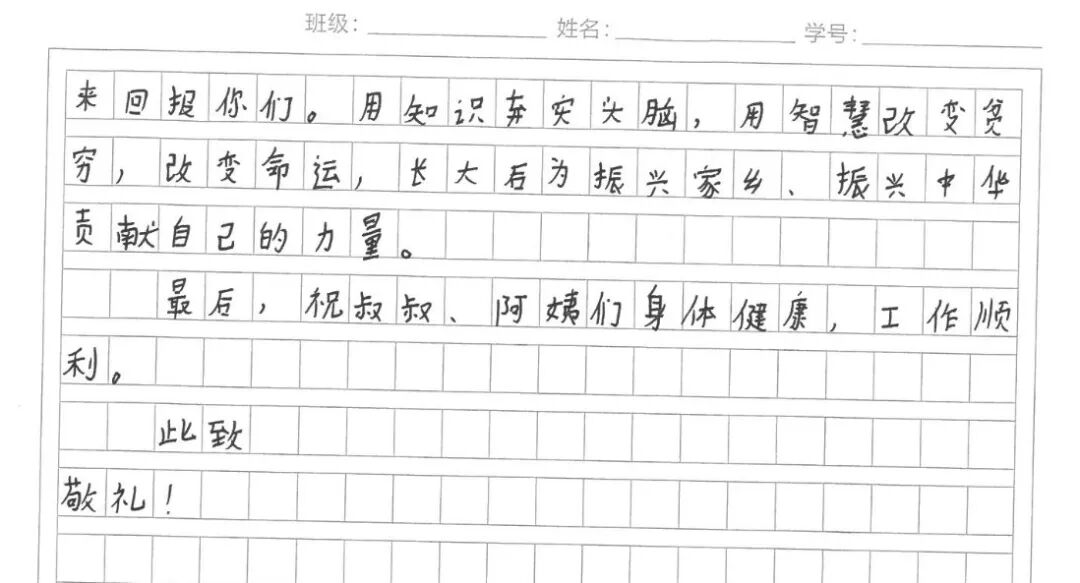 班级: 姓名: 学号:
来回报你们。用知识奔实头脑,用智慧改变贫
穷,改变命运,长大后为振兴家乡、振兴中华
贡献自己的力量。
最后,祝叔叔、阿姨们身体健康,工作顺
利。
此致
敬礼!